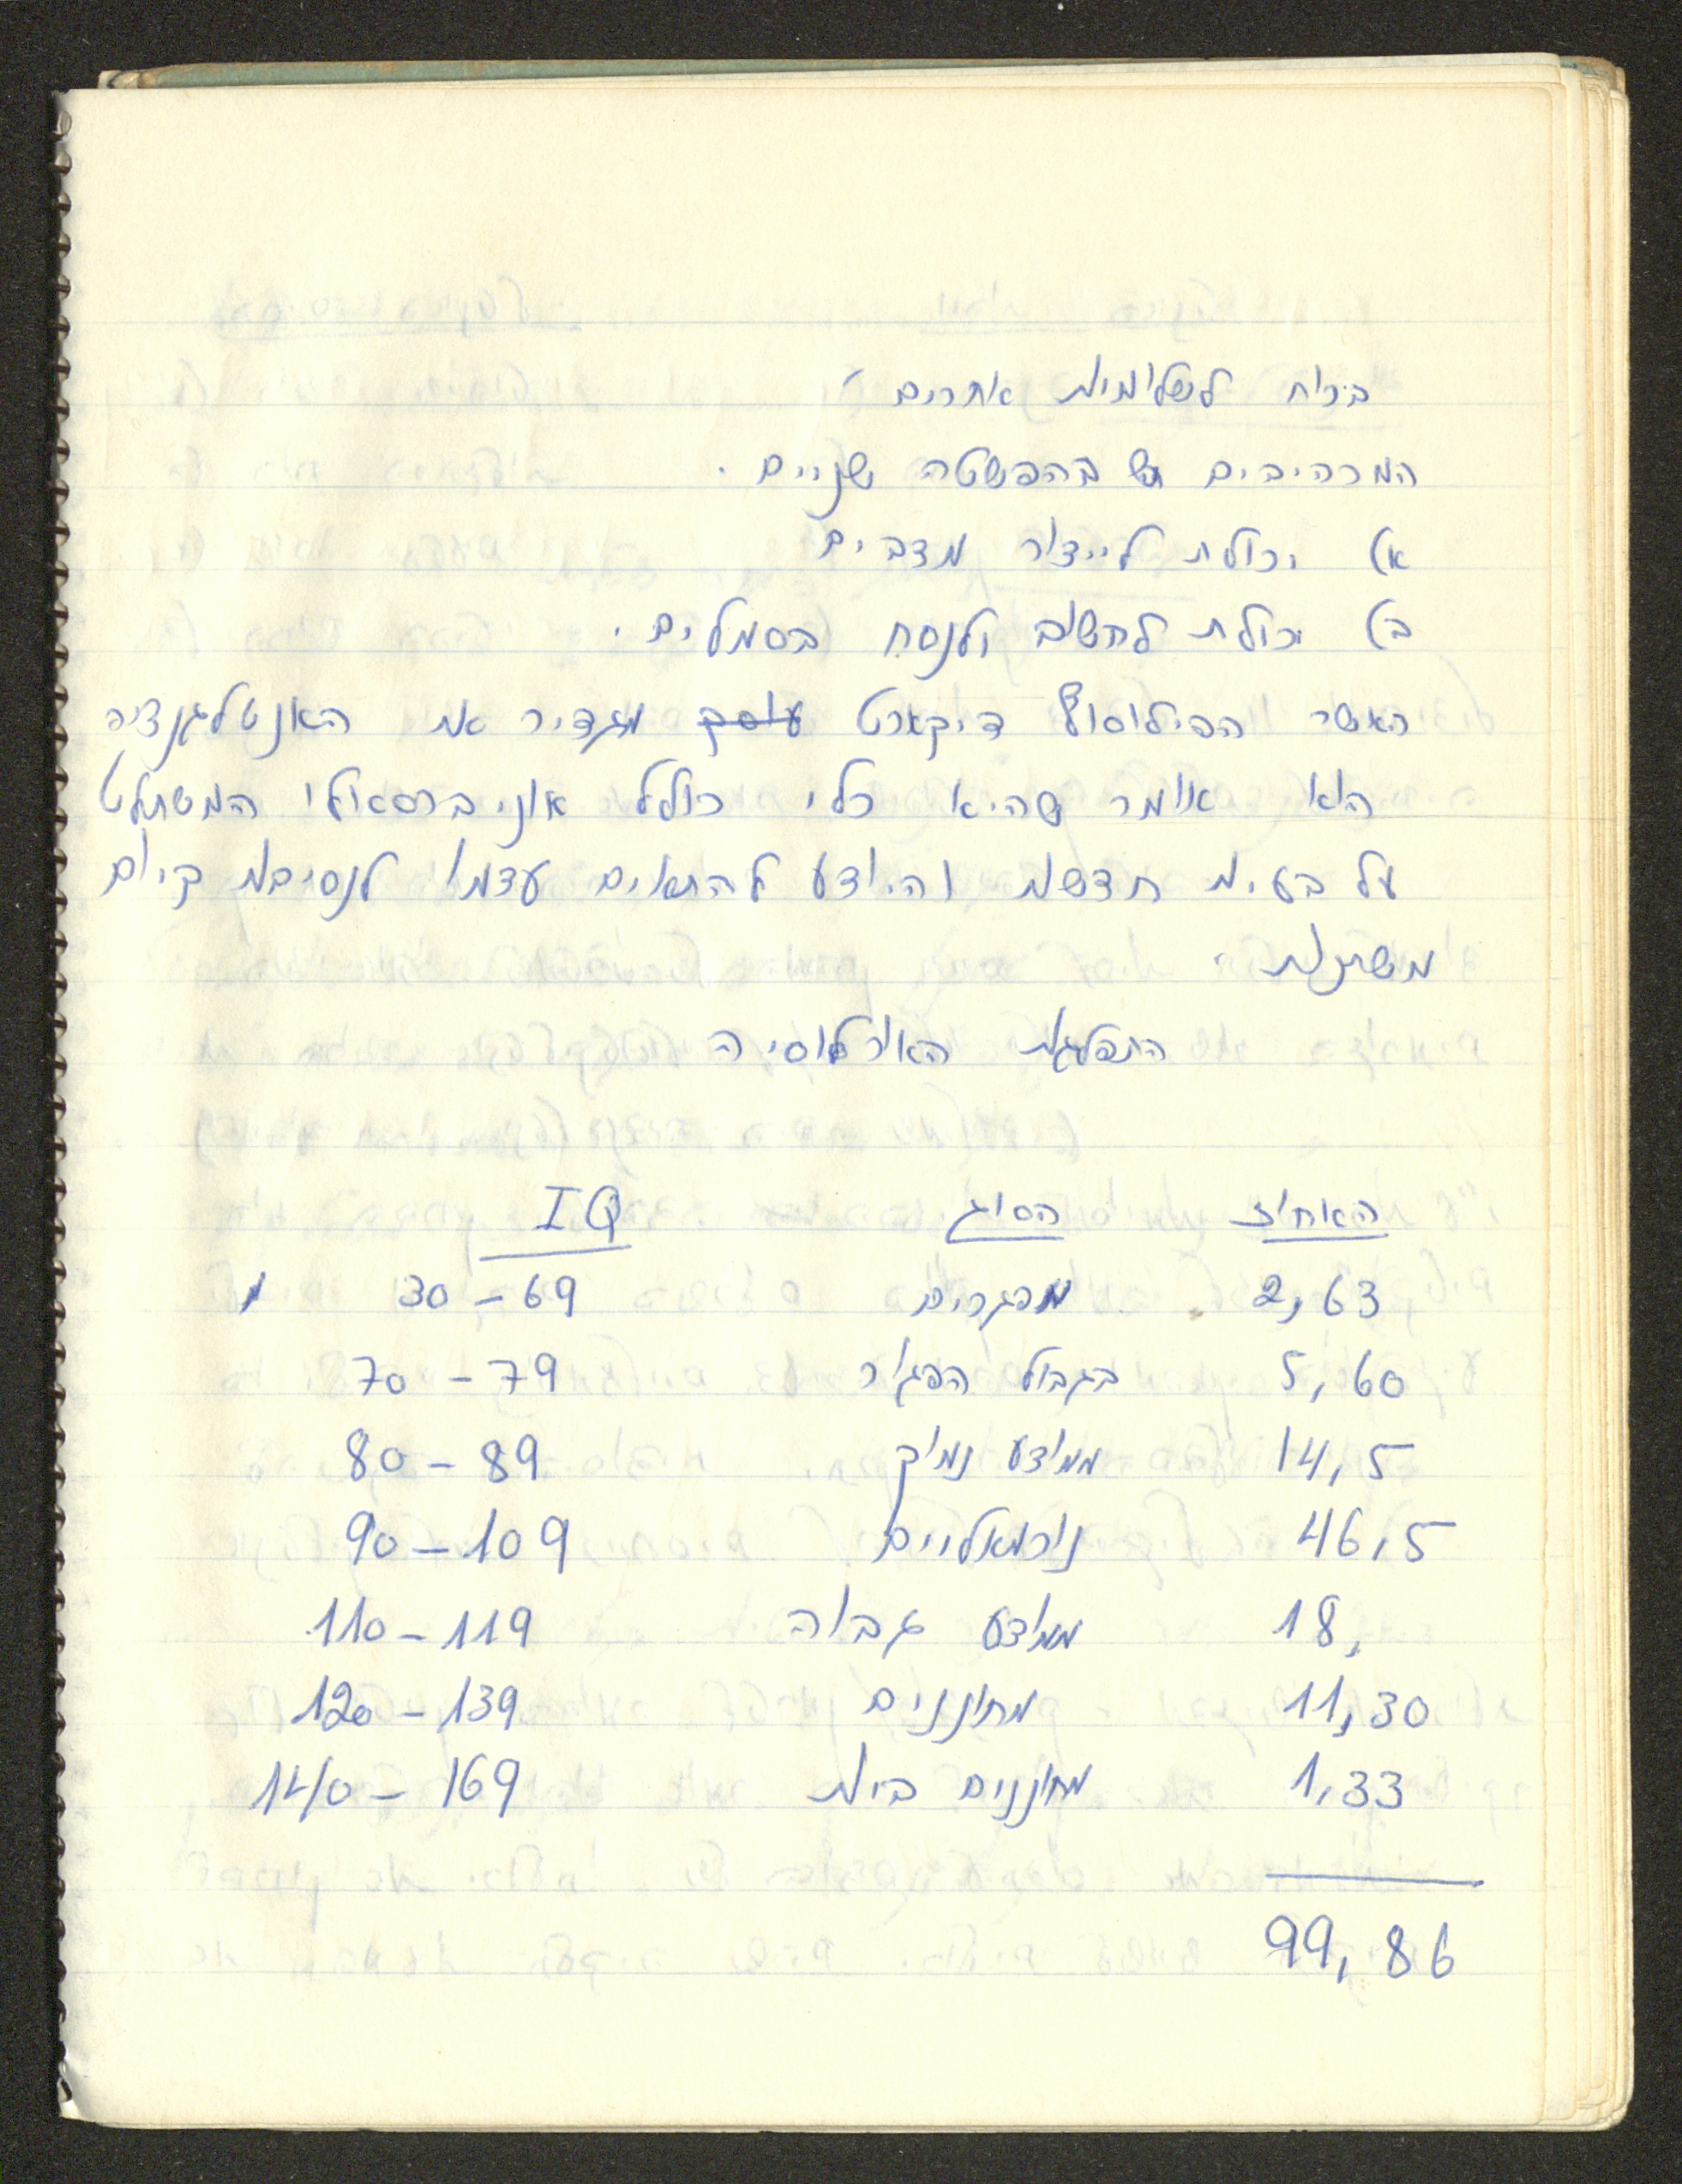 בכוח לשלומית אחרים
המרכיבים בהפשטה שניים.
א) יכולת לייצור מצבים
ב) יכולת לחשוב ולנסח בסמלים.
כאשר הפילוסוף דיקארט עוסק מגדיר את האנטלגנציה
הוא אומר שהיא כלי כולל אוניברסאולי המשתלט
על בעיות חדשות והיודע להתאים עצמו לנסיבות קיום
משתנות.
התפלגות האוכלוסיה
האחוז הסוג IQ
2,63 מפגרים 30-69
5,60 בגבול הפגור 70-79
14,5 ממוצע נמוך 80-89
46,5 נורמאליים 90-109
18, ממוצע גבוה 110-119
11,30 מחוננים 120-139
1,33 מחוננים ביות 140-169
99,86